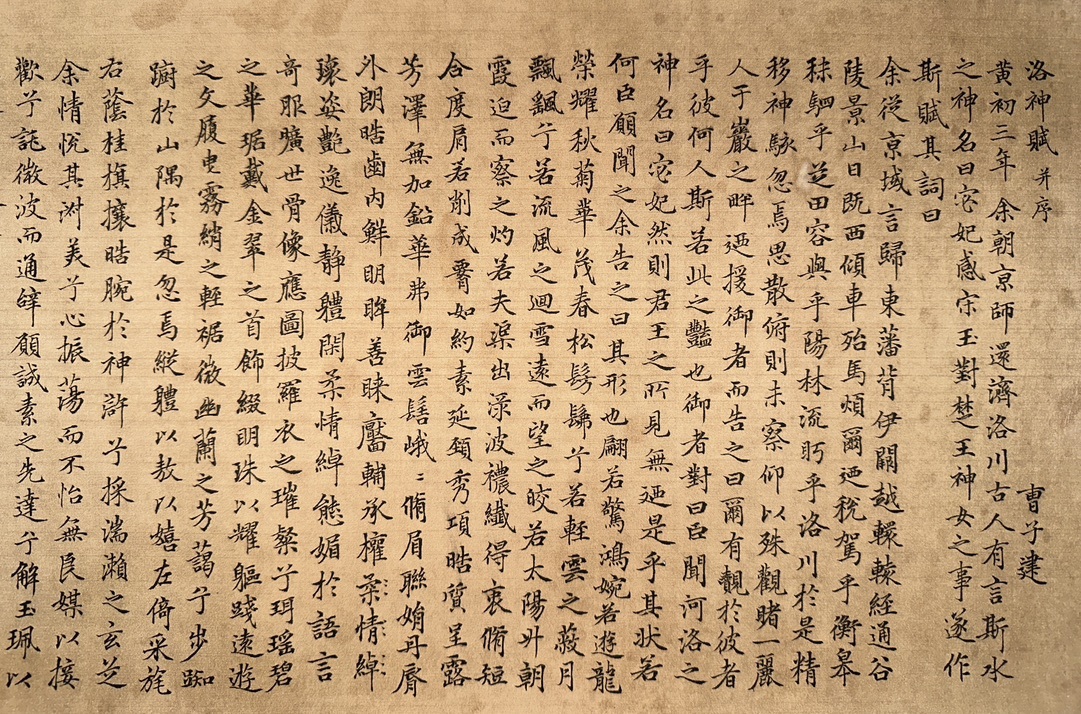 洛神賦 并序 曹子建
黄初三年余朝京師還濟洛川古人有言斯水
之神名曰宓妃感宋玉對楚王神女之事遂作
斯賦其詞曰
余從京域言歸東藩背伊闕越轘轅經通谷
陵景山日既西傾車殆馬煩爾迺稅駕乎衡皋
秣駟乎芝田容與乎陽林流眄乎洛川於是精
移神駭忽焉思散俯則未察仰以殊觀睹一麗
人于巖之畔迺援御者而告之曰爾有覿於彼者
乎彼何人斯若此之豔也御者對曰臣聞河洛之
神名曰宓妃然則君王之所見無迺是乎其狀若
何臣願聞之余告之曰其形也翩若驚鴻婉若遊龍
榮耀秋菊華茂春松髣髴兮若輕雲之蔽月
飄颻兮若流風之迴雪遠而望之皎若太陽升朝
霞迫而察之灼若夫渠出淥波穠纖得衷脩短
合度肩若削成腰如約素延頸秀項皓質呈露
芳澤無加鉛華弗御雲髻峨〻脩眉聯娟丹脣
外朗皓齒内鮮明眸善睞靨輔承權柔情綽
瓌姿艷逸儀静軆閑柔情綽態媚於語言
奇服曠世骨像應圖披羅衣之璀粲兮珥瑶碧
之華琚戴金翠之首飾綴明珠以耀軀踐遠遊
之文履曳霧綃之輕裾微幽蘭之芳藹兮步踟
蹰於山隅於是忽焉縱軆以敖以嬉左倚采旄
右蔭桂旗攘皓腕於神滸兮採湍瀨之玄芝
余情悅其淑美兮心振蕩而不怡無良媒以接
歡兮託微波而通辝願誠素之先達兮解玉珮以